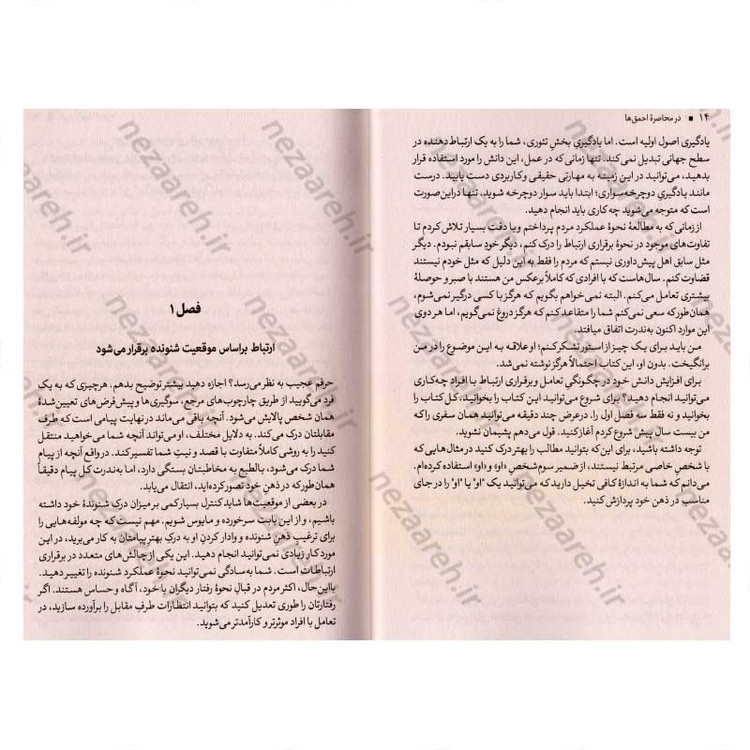 ۱۴ ■ در محاصرهٔ احمق‌ها
یادگیری اصول اولیه است. اما یادگیریِ بخشِ تئوری، شما را به یک ارتباط‌دهنده در
سطح جهانی تبدیل نمی‌کند. تنها زمانی که در عمل، این دانش را مورد استفاده قرار
بدهید، می‌توانید در این زمینه به مهارتی حقیقی و کاربردی دست یابید. درست
مانند یادگیریِ دوچرخه‌سواری؛ ابتدا باید سوار دوچرخه شوید، تنها در این صورت
است که متوجه می‌شوید چه کاری باید انجام دهید.
از زمانی که به مطالعهٔ نحوهٔ عملکرد مردم پرداختم و با دقت بسیار تلاش کردم تا
تفاوت‌های موجود در نحوهٔ برقراری ارتباط را درک کنم، دیگر خودِ سابقم نبودم. دیگر
مثل سابق اهل پیش‌داوری نیستم که مردم را فقط به این دلیل که مثل خودم نیستند
قضاوت کنم. سال‌هاست که با افرادی که کاملاً برعکس من هستند با صبر و حوصلهٔ
بیشتری تعامل می‌کنم. البته نمی‌خواهم بگویم که هرگز با کسی درگیر نمی‌شوم،
همان‌طور که سعی نمی‌کنم شما را متقاعد کنم که هرگز دروغ نمی‌گویم، اما هر دوی
این موارد اکنون به‌ندرت اتفاق میافتد.
من باید برای یک چیز از استور تشکر کنم؛ او علاقه به این موضوع را در من
برانگیخت. بدون او، این کتاب احتمالاً هرگز نوشته نمی‌شد.
برای افزایش دانش خود در چگونگی تعامل و برقراری ارتباط با افراد چه‌کاری
می‌توانید انجام دهید؟ برای شروع می‌توانید این کتاب را بخوانید، کل کتاب را
بخوانید و نه فقط سه فصل اول را. در عرض چند دقیقه می‌توانید همان سفری را که
من بیست سال پیش شروع کردم آغاز کنید. قول می‌دهم پشیمان نشوید.
توجه داشته باشید، برای این‌که بتوانید مطالب را بهتر درک کنید در مثال‌هایی که
با شخصِ خاصی مرتبط نیستند، از ضمیر سوم‌شخصِ «او» و «او» استفاده کرده‌ام.
می‌دانم که شما به اندازهٔ کافی تخیل دارید که می‌توانید یک "او" یا "او" را در جای
مناسب در ذهن خود پردازش کنید.
فصل ۱
ارتباط براساس موقعیت شنونده برقرار می‌شود
حرفم عجیب به نظر می‌رسد؟ اجازه دهید بیشتر توضیح بدهم. هرچیزی که به یک
فرد می‌گویید از طریق چارچوب‌های مرجع، سوگیری‌ها و پیش‌فرض‌های تعیین‌شدهٔ
همان شخص پالایش می‌شود. آنچه باقی می‌ماند در نهایت پیامی است که طرف
مقابلتان درک می‌کند. به دلایل مختلف، او می‌تواند آنچه شما می‌خواهید منتقل
کنید را به روشی کاملاً متفاوت با قصد و نیتِ شما تفسیر کند. در واقع آنچه از پیام
شما درک می‌شود، بالطبع به مخاطبتان بستگی دارد، اما به‌ندرت کل پیام دقیقاً
همان‌طور که در ذهنِ خود تصور کرده‌اید، انتقال می‌یابد.
در بعضی از موقعیت‌ها شاید کنترل بسیار کمی بر میزان درک شنوندهٔ خود داشته
باشیم، و از این بابت سرخورده و مایوس شویم. مهم نیست که چه مولفه‌هایی را
برای ترغیب ذهنِ شنونده و وادار کردنِ او به درک بهتر پیامتان به کار می‌برید، در این
مورد کار زیادی نمی‌توانید انجام دهید. این یکی از چالش‌های متعدد در برقراری
ارتباطات است. شما به‌سادگی نمی‌توانید نحوهٔ عملکرد شنونده را تغییر دهید.
بااین‌حال، اکثر مردم در قبالِ نحوهٔ رفتار دیگران با خود، آگاه و حساس هستند. اگر
رفتارتان را طوری تعدیل کنید که بتوانید انتظارات طرف مقابل را برآورده سازید، در
تعامل با افراد موثرتر و کارآمدتر می‌شوید.
nezaareh.ir